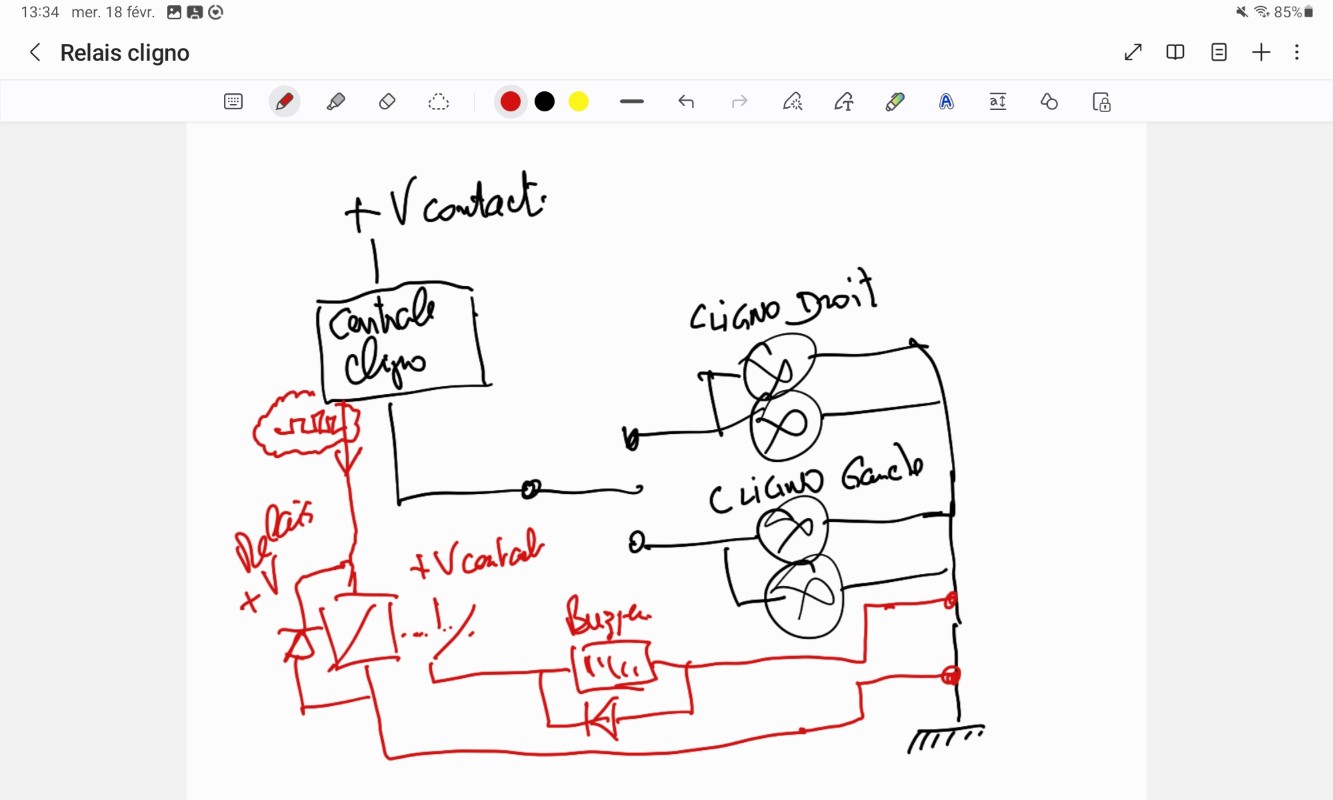 13:34 mer. 18 févr. 85%
Relais cligno
+ V contact
Centrale
cligno
CLIGNO Droit
CLIGNO Gauche
Relais
+V
+V contact
Buzzer